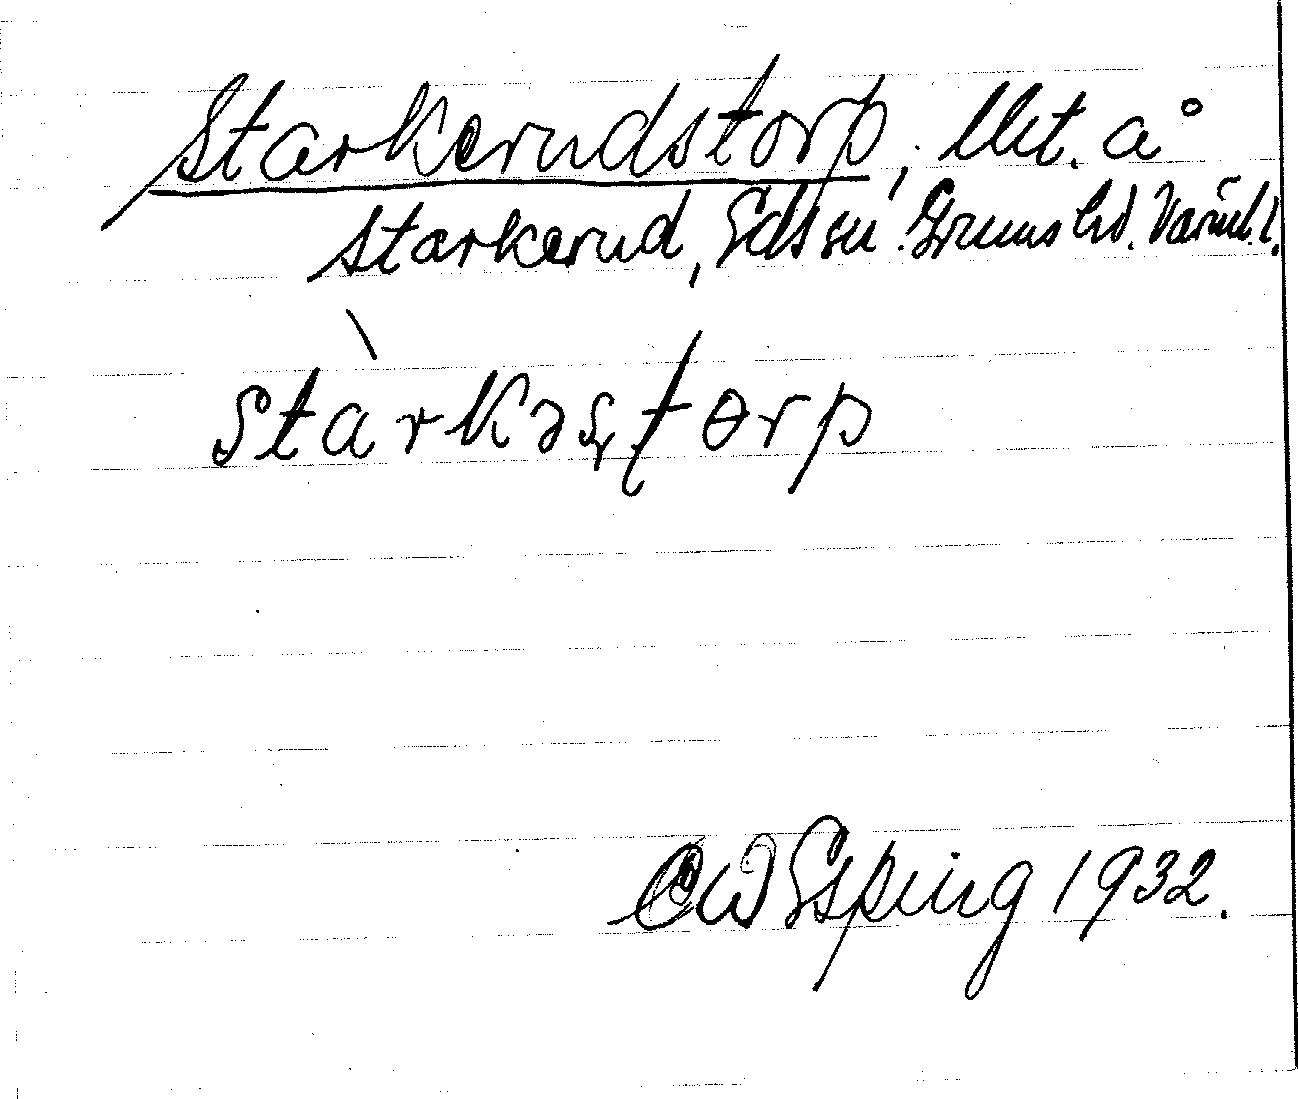 Starkerudstorp, Utt. å
Starkerud, Eds sn. Grums hd. Värml.
stàrkəstorp
CW Esping 1932.